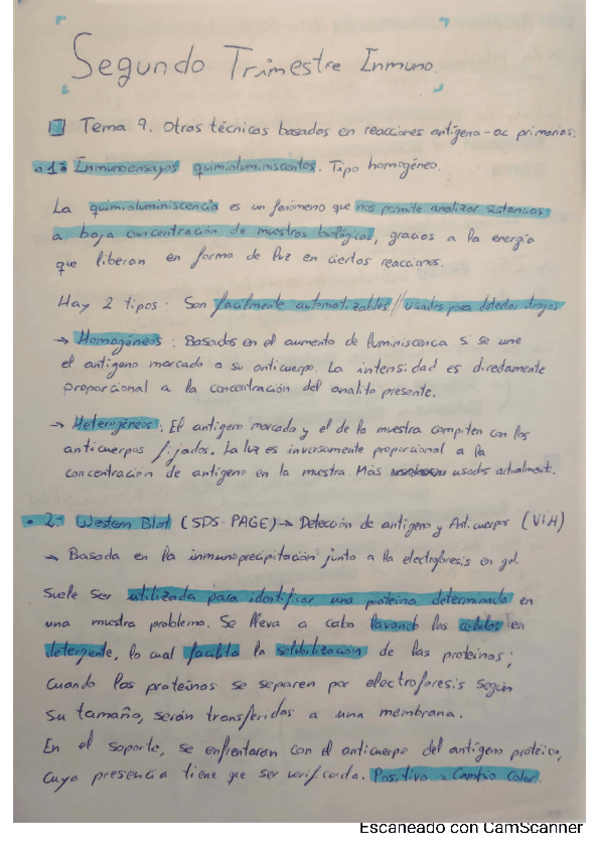 Segundo Trimestre Inmuno.
Tema 9. Otras técnicas basadas en reacciones antígeno-ac primarias.
1: Inmunoensayos quimioluminiscentes. Tipo homogéneo.
La quimioluminiscencia es un fenómeno que nos permite analizar sustancias
a baja concentración de muestras biológicas, gracias a la energía
que liberan en forma de luz en ciertas reacciones.
Hay 2 tipos: Son facilmente automatizables // usados para detectar drogas
→ Homogéneos: Basados en el aumento de luminiscencia si se une
el antígeno marcado a su anticuerpo. La intensidad es directamente
proporcional a la concentración del analito presente.
→ Heterogéneos: El antígeno marcado y el de la muestra compiten con los
anticuerpos fijados. La luz es inversamente proporcional a la
concentración de antígeno en la muestra. Más usados actualmente.
2: Western Blot (SDS-PAGE) → Detección de antígeno y Anticuerpos (VIH)
→ Basada en la inmunoprecipitación junto a la electroforesis en gel.
Suele ser utilizada para identificar una proteína determinada en
una muestra problema. Se lleva a cabo lavando las células en
detergente, lo cual facilita la solibilización de las proteínas;
Cuando las proteínas se separen por electroforesis según
su tamaño, serán transferidas a una membrana.
En el soporte, se enfrentaran con el anticuerpo del antígeno proteico,
cuya presencia tiene que ser verificada. Positivo = Cambio Color.
Escaneado con CamScanner